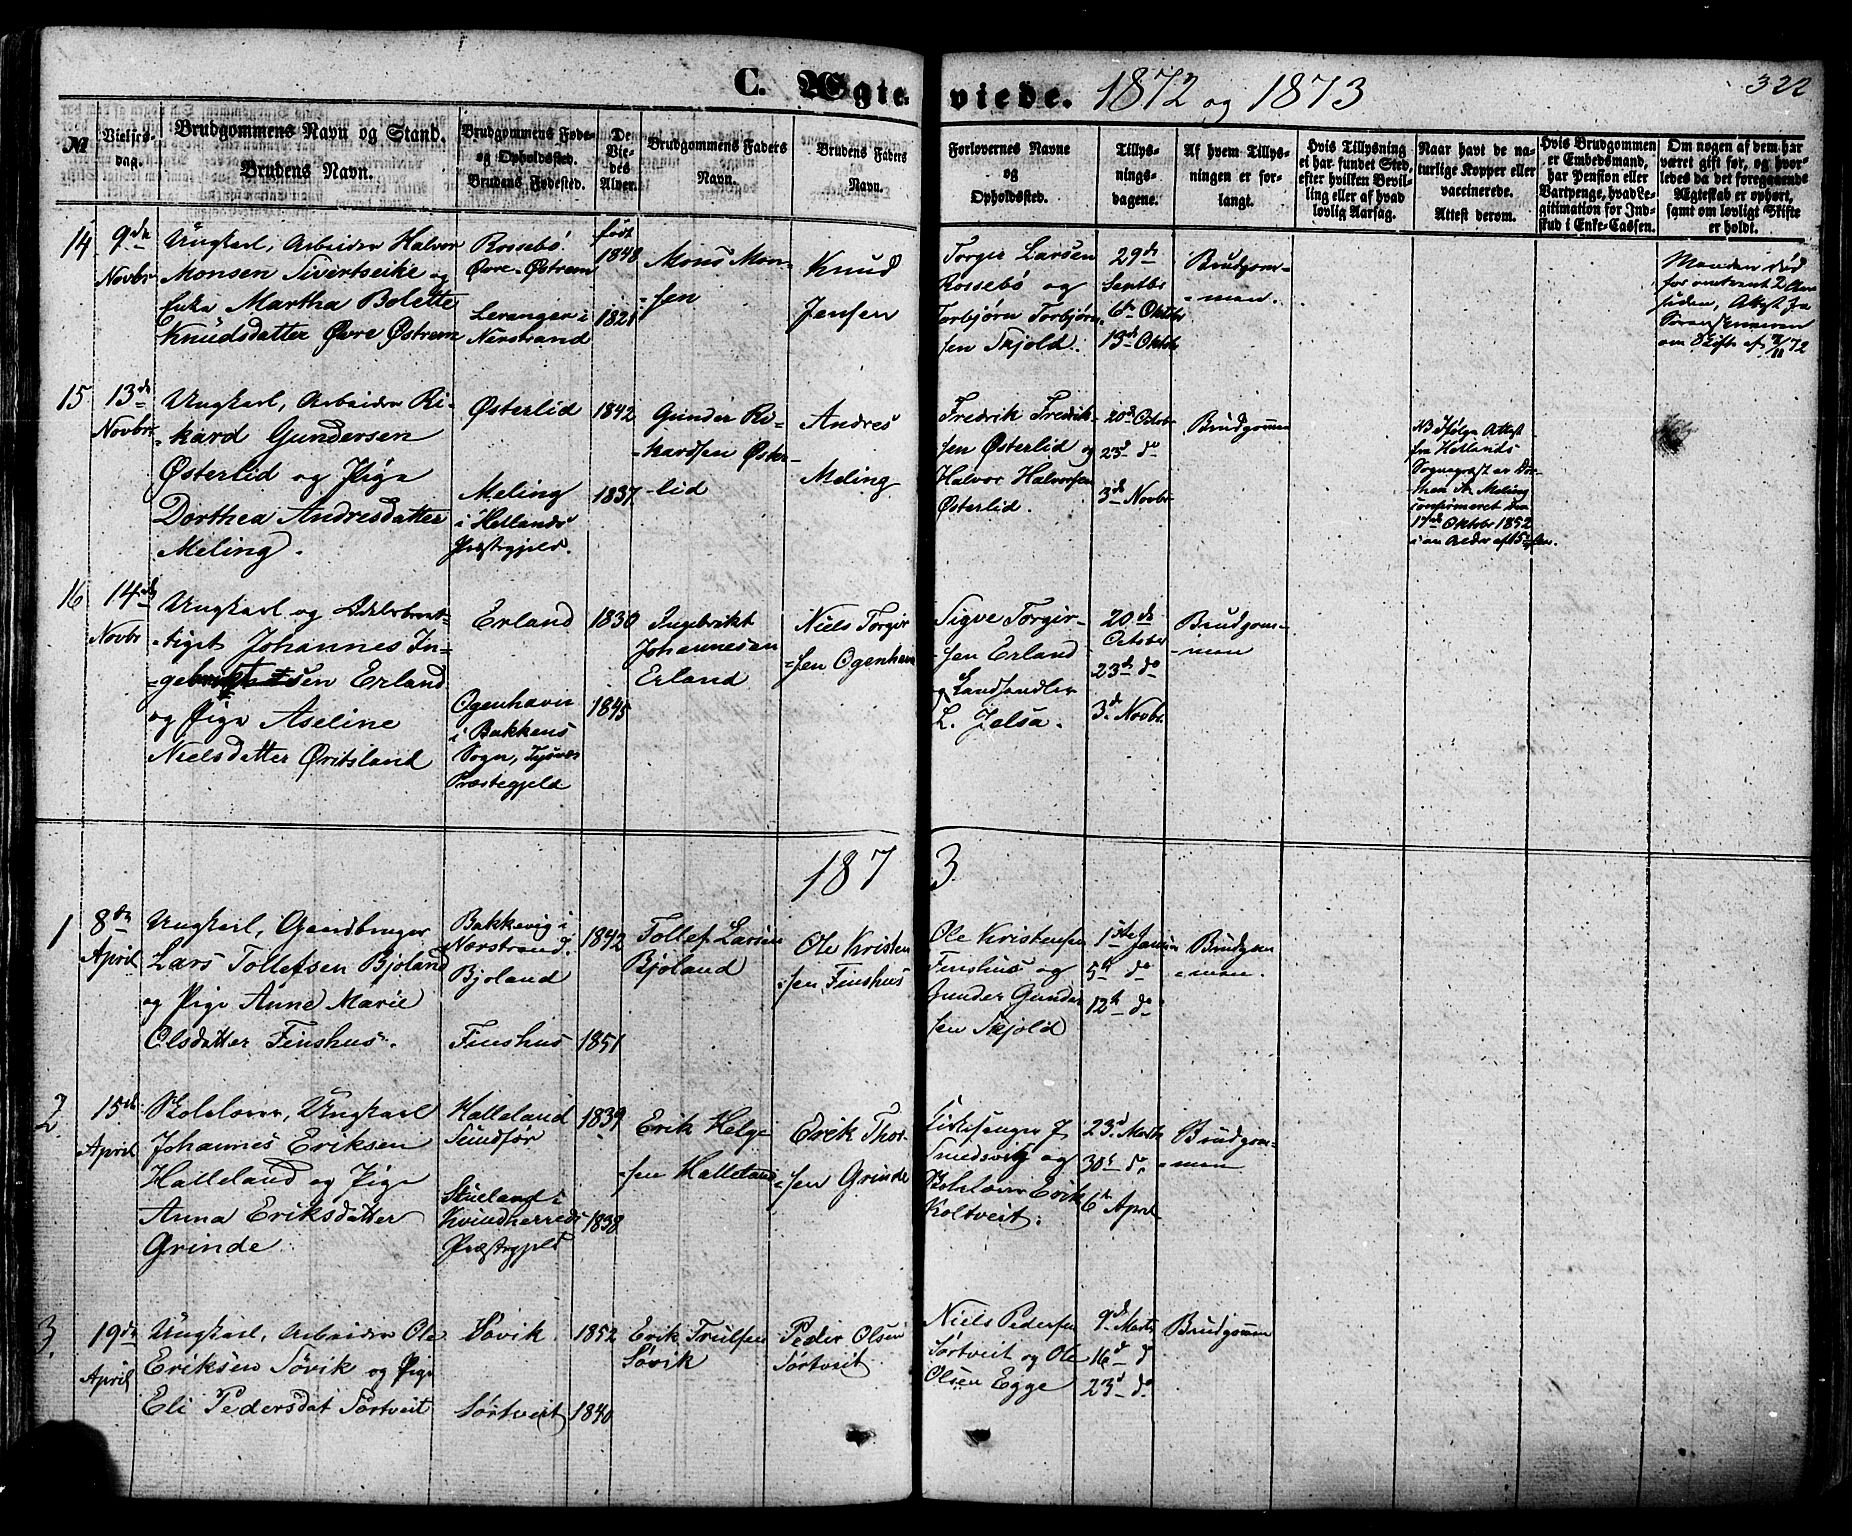 C. Ægte- viede. 1872 og 1873
322
№
Vielses-
dag.
Brudgommens Navn og Stand.
Brudens Navn.
Brudgommens Føde-
og Opholdssted.
Brudens Fødested.
De
Vie-
des
Alder.
Brudgommens Faders
Navn.
Brudens Faders
Navn.
Forlovernes Navne
og
Opholdssted.
Tillys-
nings-
dagene.
Af hvem Tillys-
ningen er for-
langt.
Hvis Tillysning
ei har fundet Sted,
efter hvilken Bevil-
ling eller af hvad
lovlig Aarsag.
Naar havt de na-
turlige Kopper eller
vaccinerede.
Attest derom.
Hvis Brudgommen
er Embedsmand,
har Pension eller
Vartpenge, hvad Le-
gitimation for Ind-
skud i Enke-Cassen.
Om nogen af dem har
været gift før, og hvor-
ledes da det foregaaende
Ægteskab er ophørt,
samt om lovligt Skifte
er holdt.
14
9de
Novbr
Ungkarl, Arbeider Halvor
Monsen Sivertseike og
Enke Martha Bolette
Knudsdatter Øvre Østrem
Rossebø
Øvre-Østrem
Leranger i
Nerstrand
født
1848
1821
Mons Mon-
sen
Knud
Jensen
Torger Larsen
Rossebø og
Torbjørn Torbjørn-
sen Skjold.
29de
Septbr
6te Oktbr
13de Oktbr
Brudgom-
man.
Manden død
for omtrent 2 Aar
siden, Attest fra
Sorenskriveren
om Skifte af /11 72
15
13de
Novbr
Ungkarl, Arbeider Ri-
kard Gundersen
Østerlid og Pige
Dorthea Andresdatter
Meling.
Østerlid
Meling
i Hetlands
Præstegjeld.
1842
1837
Gunder Ri-
kardsen Øster-
lid
Andres
Meling
Fredrik Fredrik-
sen Østerlid og
Halvor Halvorsen
Østerlid.
20de Octobr
23d do
3de Novbr
Brudgommen
NB Ifølge Attest
fra Hetlands
Sognepræst er Dor-
thea A. Meling
confirmeret den
17de Oktobr 1852
i en Alder af 15 Aar.
16
14de
Novbr
Ungkarl og
-tiget Johannes In-
-gebrigtsen Erland
og Pige Aseline
Nielsdatter Øvitsland
Erland
Ogenhavn
i Bokkens
Sogn, Tysvær
Præstegjeld
1830
1845
Ingebrikt
Johannesen
Erland
Niels Torger
-sen Ogenhavn
Sigve Torger-
-sen Erland
og Landhandler
L. Jelsa.
20de
October
23de do
3d Novbr.
Brudgom-
-man
1873
1
8de
April
Ungkarl, Gaardbruger
Lars Tollefsen Bjoland
og Pige Anne Marie
Olsdatter Finshus.
Bakkevig i
Nerstrand.
Bjoland
Finshus
1842
1851
Tollef Larsen
Bjoland
Ole Kristen
-sen Finshus
Ole Kristensen
Finshus og
Gunder Gunder
sen Skjold
1ste Januar
5te do
12te do
Brudgom
-man.
2
15de
April
Skolelærer, Ungkarl
Johannes Eriksen
Halleland og Pige
Anna Eriksdatter
Grinde
Halleland
Sundfør
Skueland i
Kvindherreds
Præstegjeld
1839
1838
Erik Helge
-sen Halleland
Erek Thor-
-sen Grinde
Kirkesanger J.
Smedsvig og
Skolelærer Erik
Koltveit.
23d Marts
30te do
6te April
Brudgom-
-man
3.
19de
April
Ungkarl, Arbeider Ole
Eriksen Søvik og Pige
Eli Pedersdat Sørtveit
Søvik.
Sørtveit
1852
1840
Erik Trulsen
Søvik
Peder Olsen
Sørtveit
Niels Pedersen
Sørtveit og Ole
Olsen Egge
9de Marts
16de do
23de do
Brudgommen